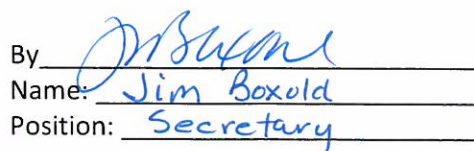 By
Name: Jim Boxold
Position: Secretary